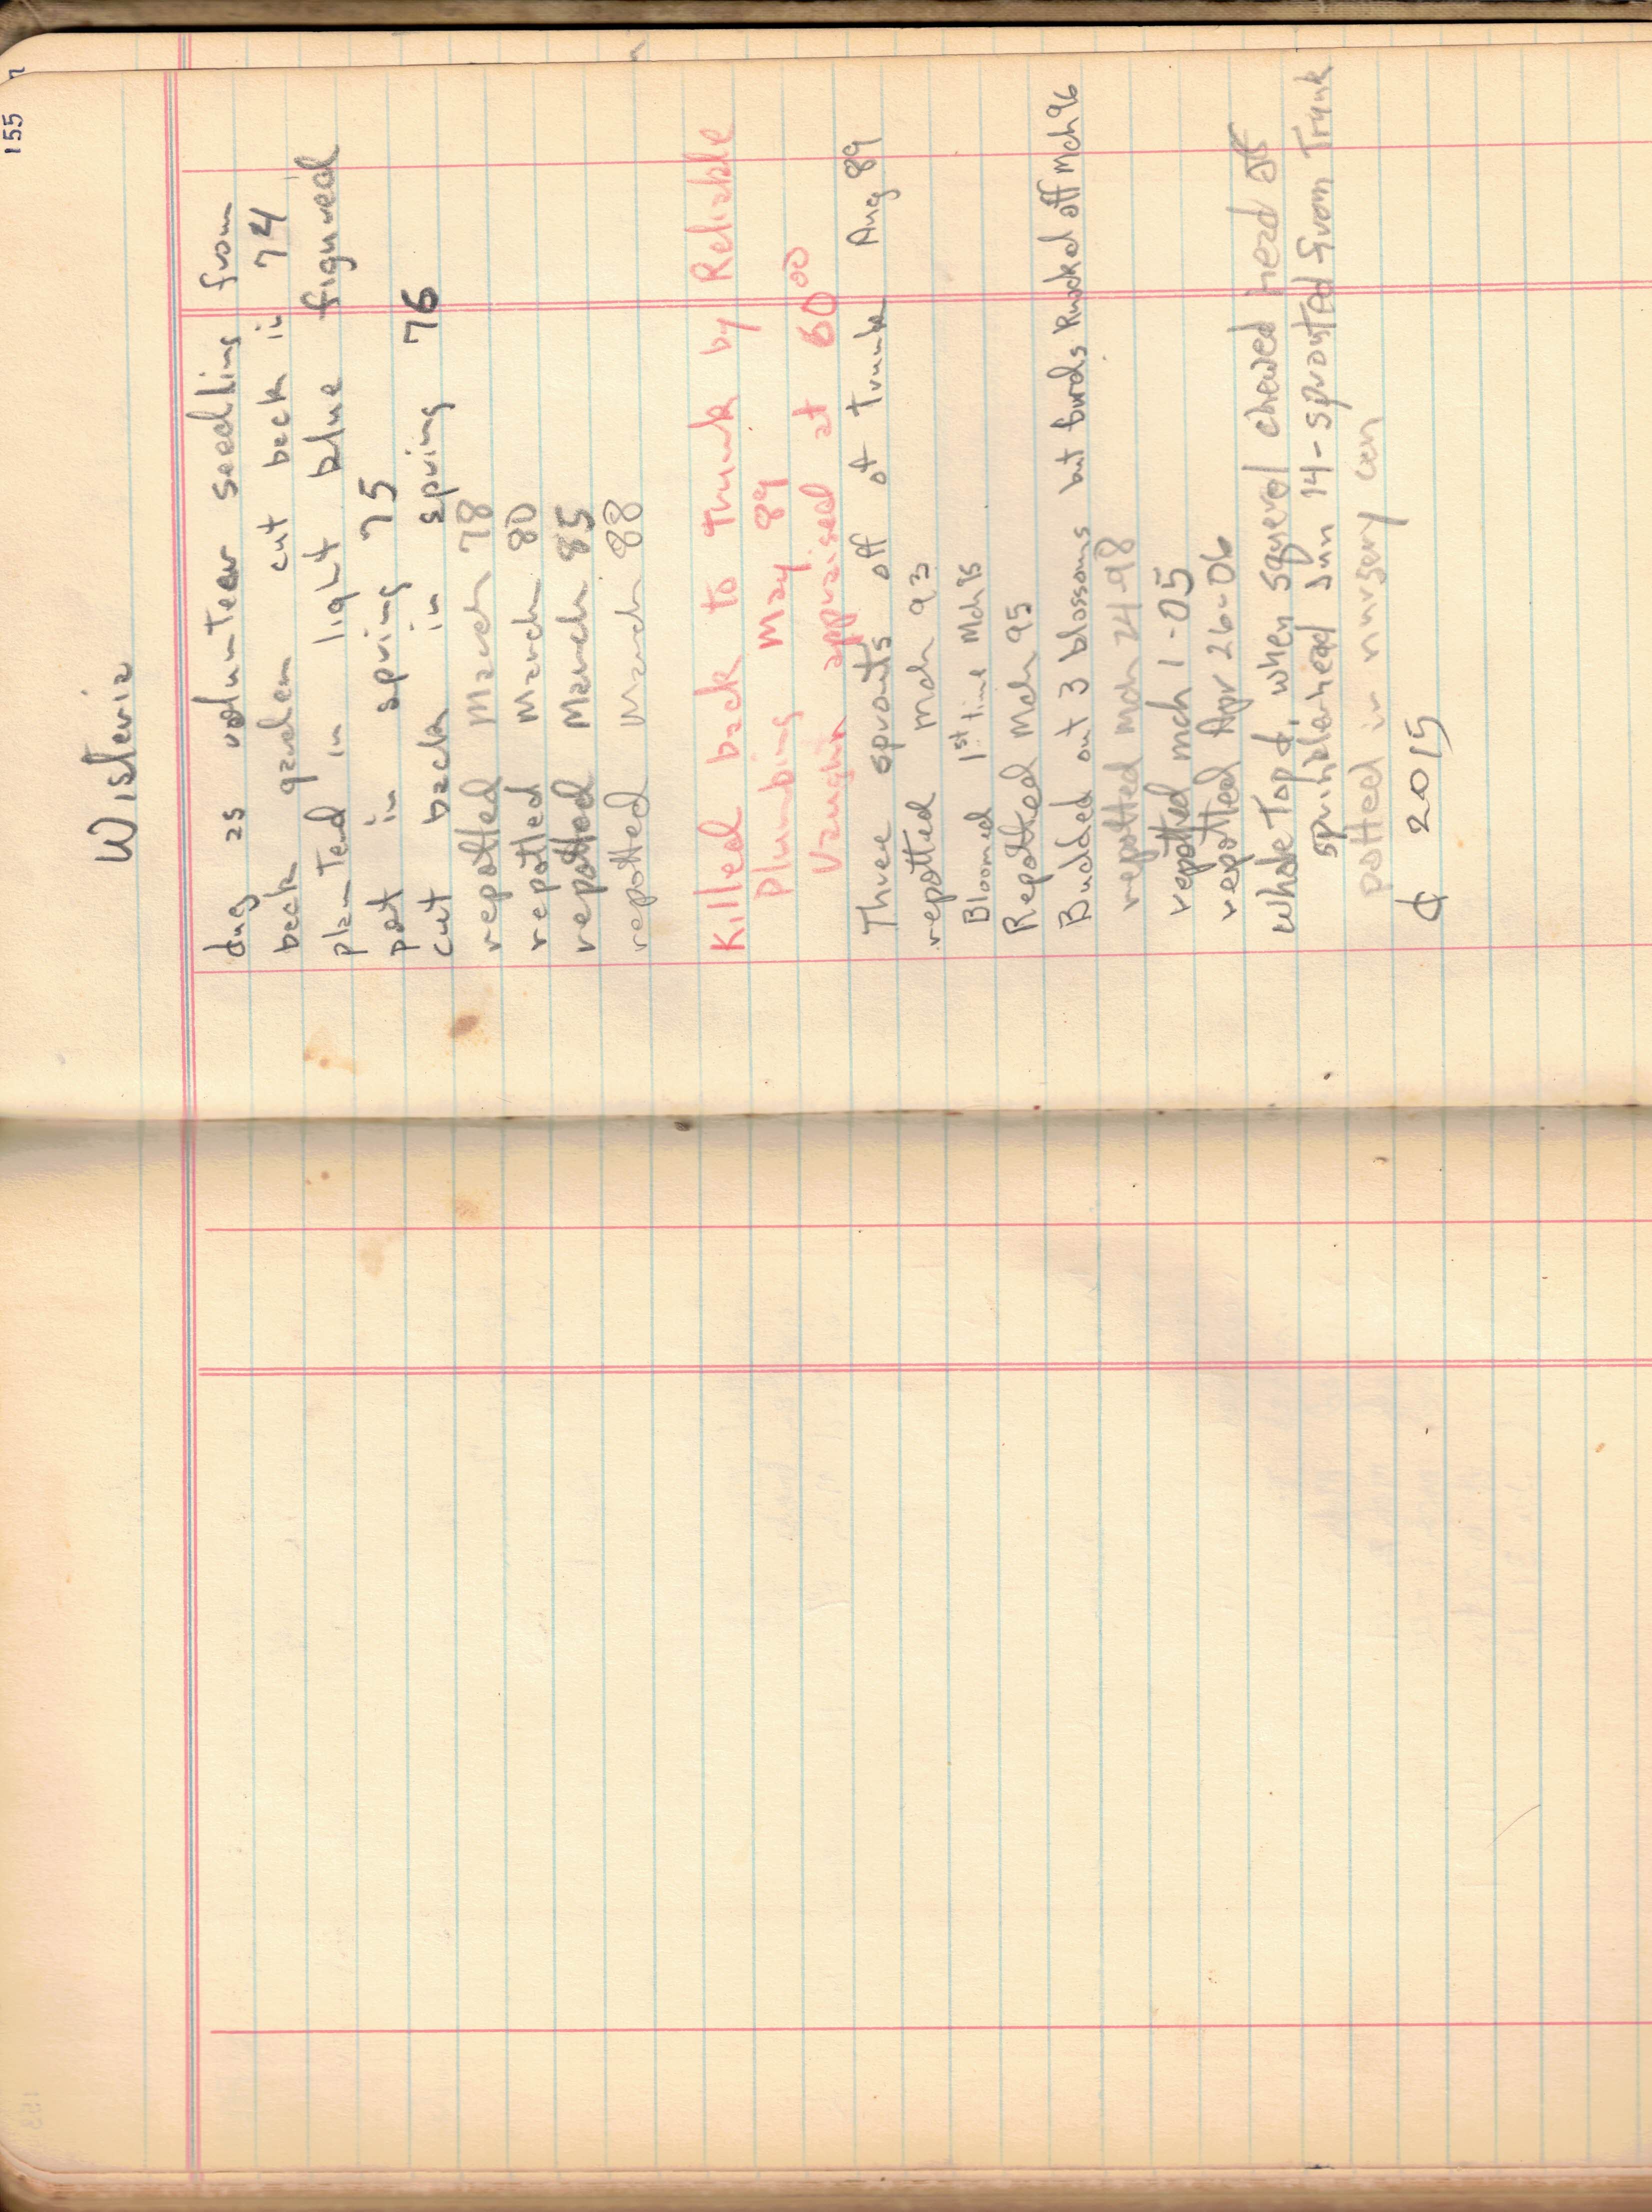 155
Wisteria
dug as volunteer seedling from
back garden cut back in 74
planted in light blue figured
pot in spring 75
cut back in spring 76
repotted March 78
repotted March 80
repotted March 85
repotted March 88
Killed back to trunk by Reliable
Plumbing May 89
Vaughn appraised at 60⁰⁰
Three sprouts off of trunk Aug 89
repotted Mch 93
Bloomed 1st time Mch 95
Repotted Mch 95
Budded out 3 blossoms but birds knocked off Mch 96
repotted Mch 24-98
repotted mch 1-05
repotted Apr 26-06
Whole Top ₵. when squerel chewed head off
sprinklerhead Jun 14-sprouted from Trunk
potted in nursery can
₵ 2015